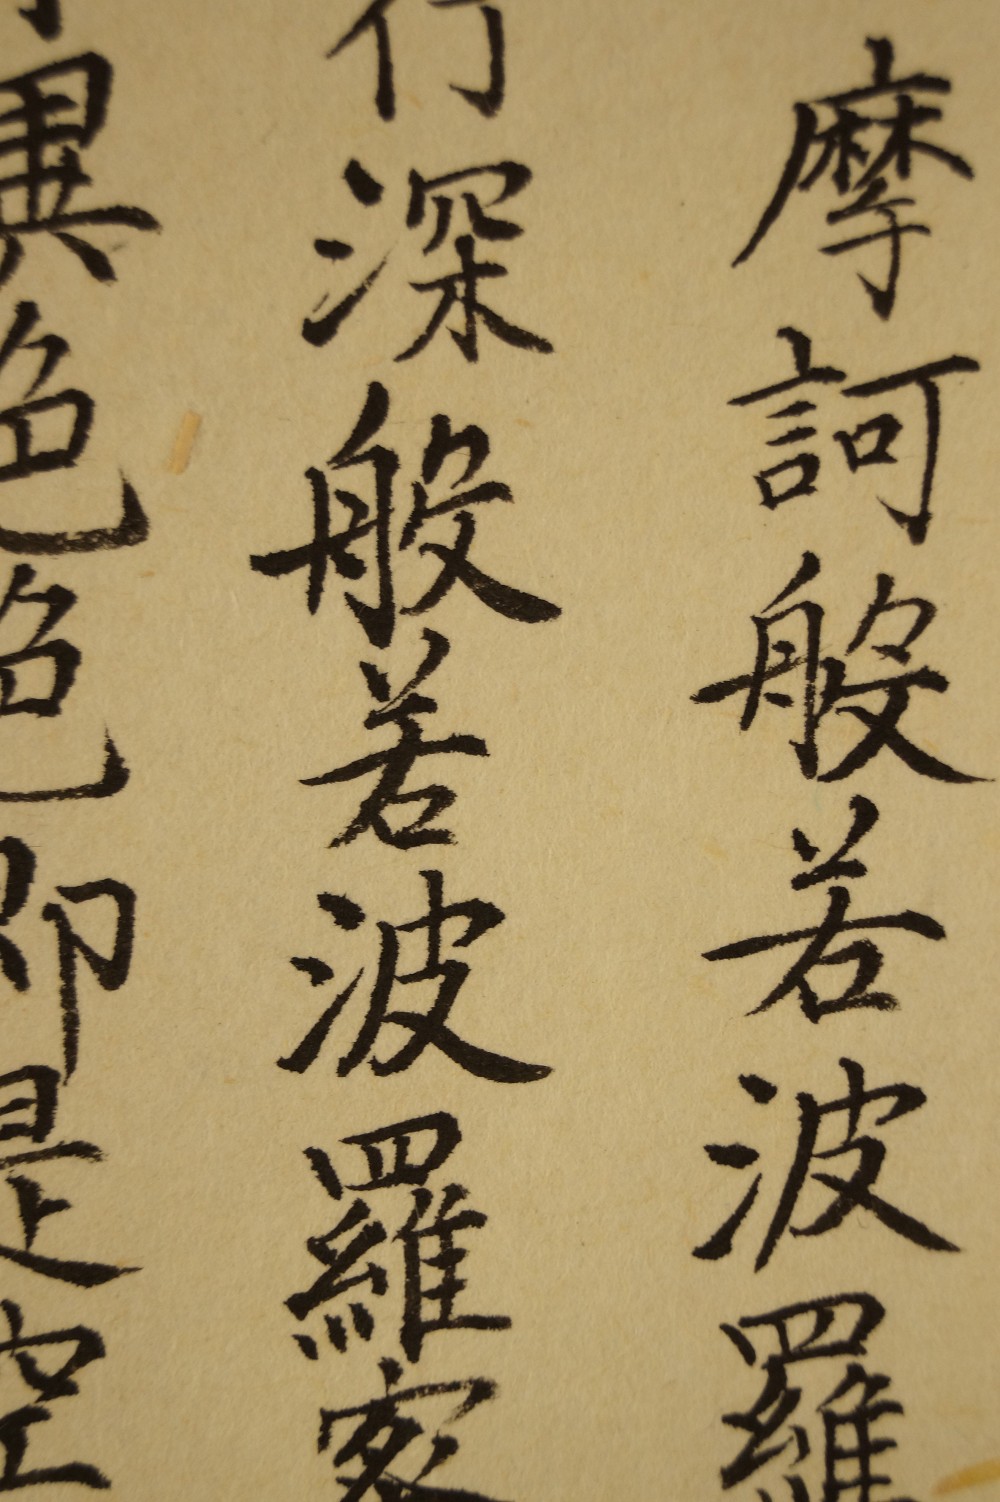 摩訶般若波羅
行深般若波羅蜜
異色色即是空